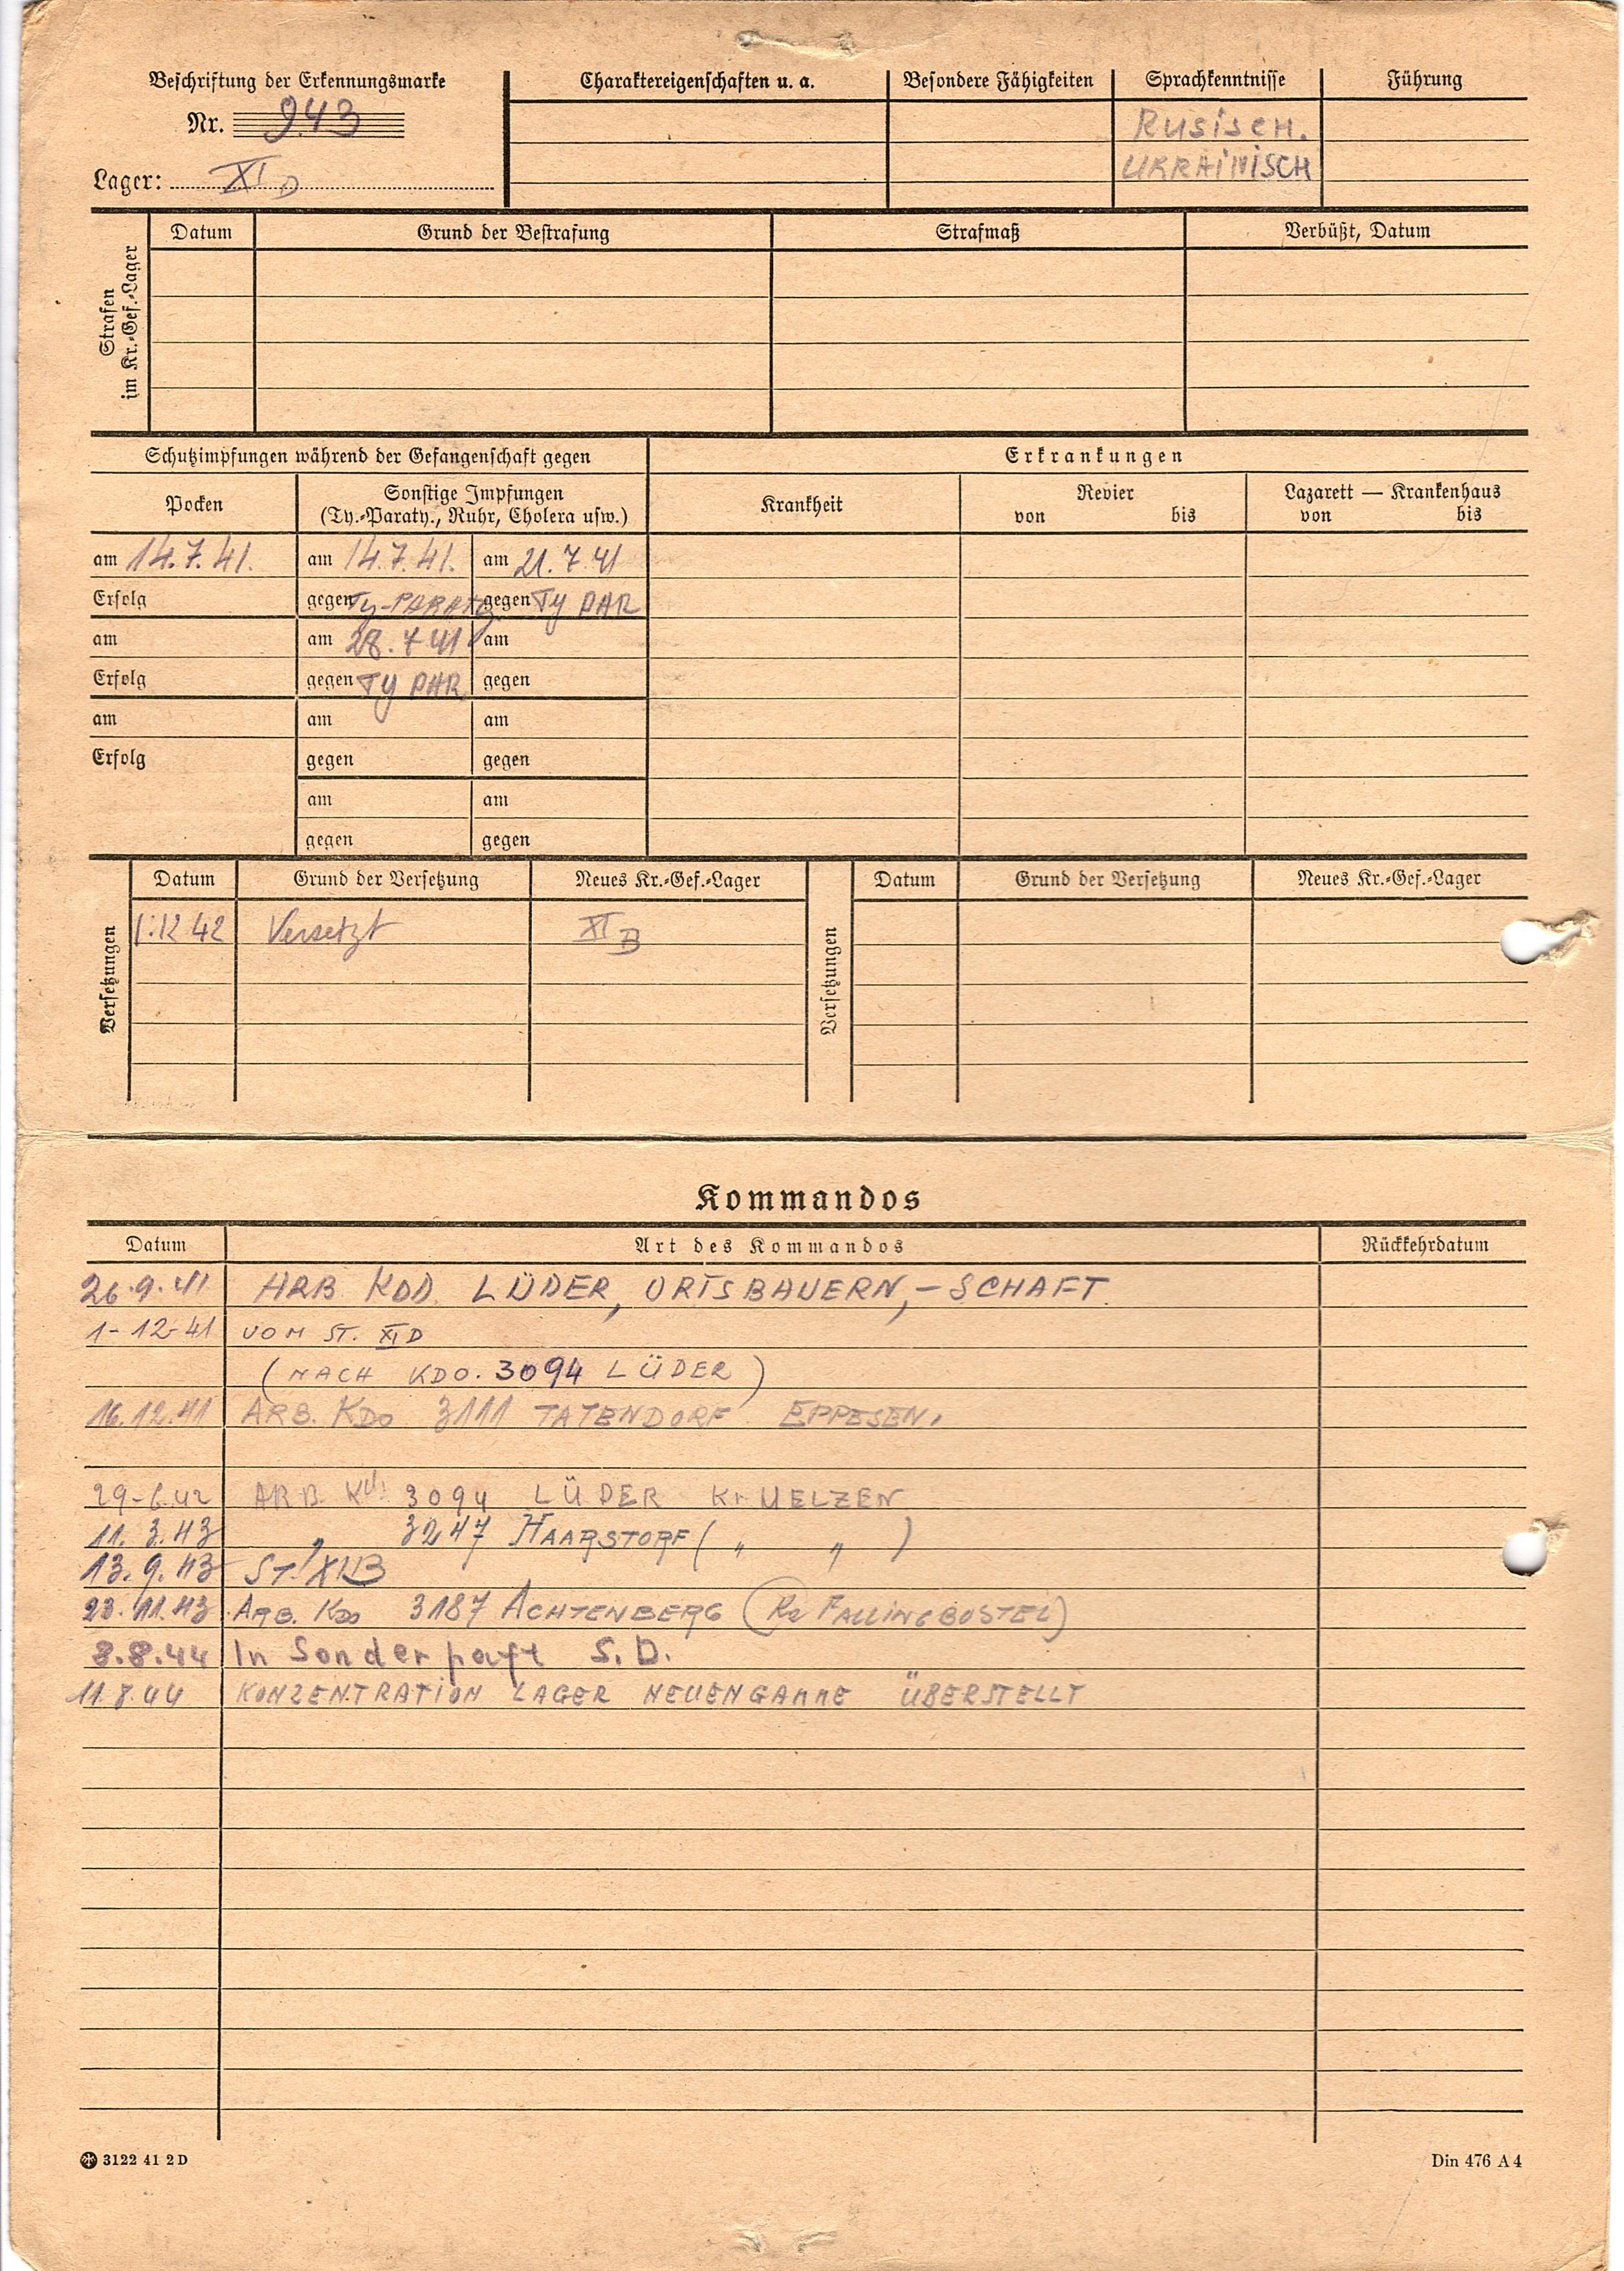 Beschriftung der Erkennungsmarke
Nr. 943
Lager: XI D
Charaktereigenschaften u. a.
Besondere Fähigkeiten
Sprachkenntnisse
RUSISCH.
UKRAINISCH
Führung
Strafen
im Kr.-Gef.-Lager
Datum Grund der Bestrafung Strafmaß Verbüßt, Datum
Schutzimpfungen während der Gefangenschaft gegen
Erkrankungen
Pocken
Sonstige Impfungen
(Ty.-Paraty., Ruhr, Cholera usw.)
Krankheit
Revier
von bis
Lazarett — Krankenhaus
von bis
am 14.7.41. am 14.7.41. am 21.7.41
Erfolg gegen Ty-PARATY gegen TY PAR
am am 28.7 41 am
Erfolg gegen TY PAR gegen
am am am
Erfolg gegen gegen
am am
gegen gegen
Versetzungen
Datum Grund der Versetzung Neues Kr.-Gef.-Lager
1.12 42 Versetzt XI B
Versetzungen
Datum Grund der Versetzung Neues Kr.-Gef.-Lager
Kommandos
Datum Art des Kommandos Rückkehrdatum
26.9.41 ARB KDO. LÜDER, ORTSBAUERN,-SCHAFT.
1-12-41 VOM ST. XI D
(NACH KDO. 3094 LÜDER)
16.12.41 ARB. KDO 3111 TATENDORF EPPESEN.
29-6.42 ARB. Kdo 3094 LÜDER Kr UELZEN
11.3.43 " 3247 HAARSTORF ( " " )
13.9.43 ST. XI B
23.11.43 ARB. KDO 3187 ACHTENBERG (Kr FALLINGBOSTEL)
8.8.44 In Sonderhaft S.D.
11.8.44 KONZENTRATION LAGER NEUENGAMME ÜBERSTELLT
3122 41 2 D
Din 476 A 4